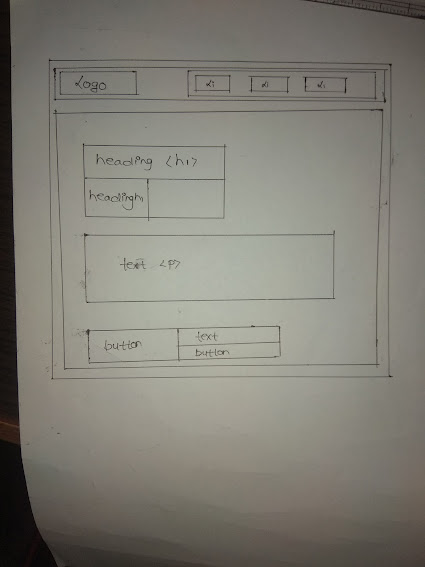 Logo li li li
heading <h1>
headingh1
text <P>
button text
button